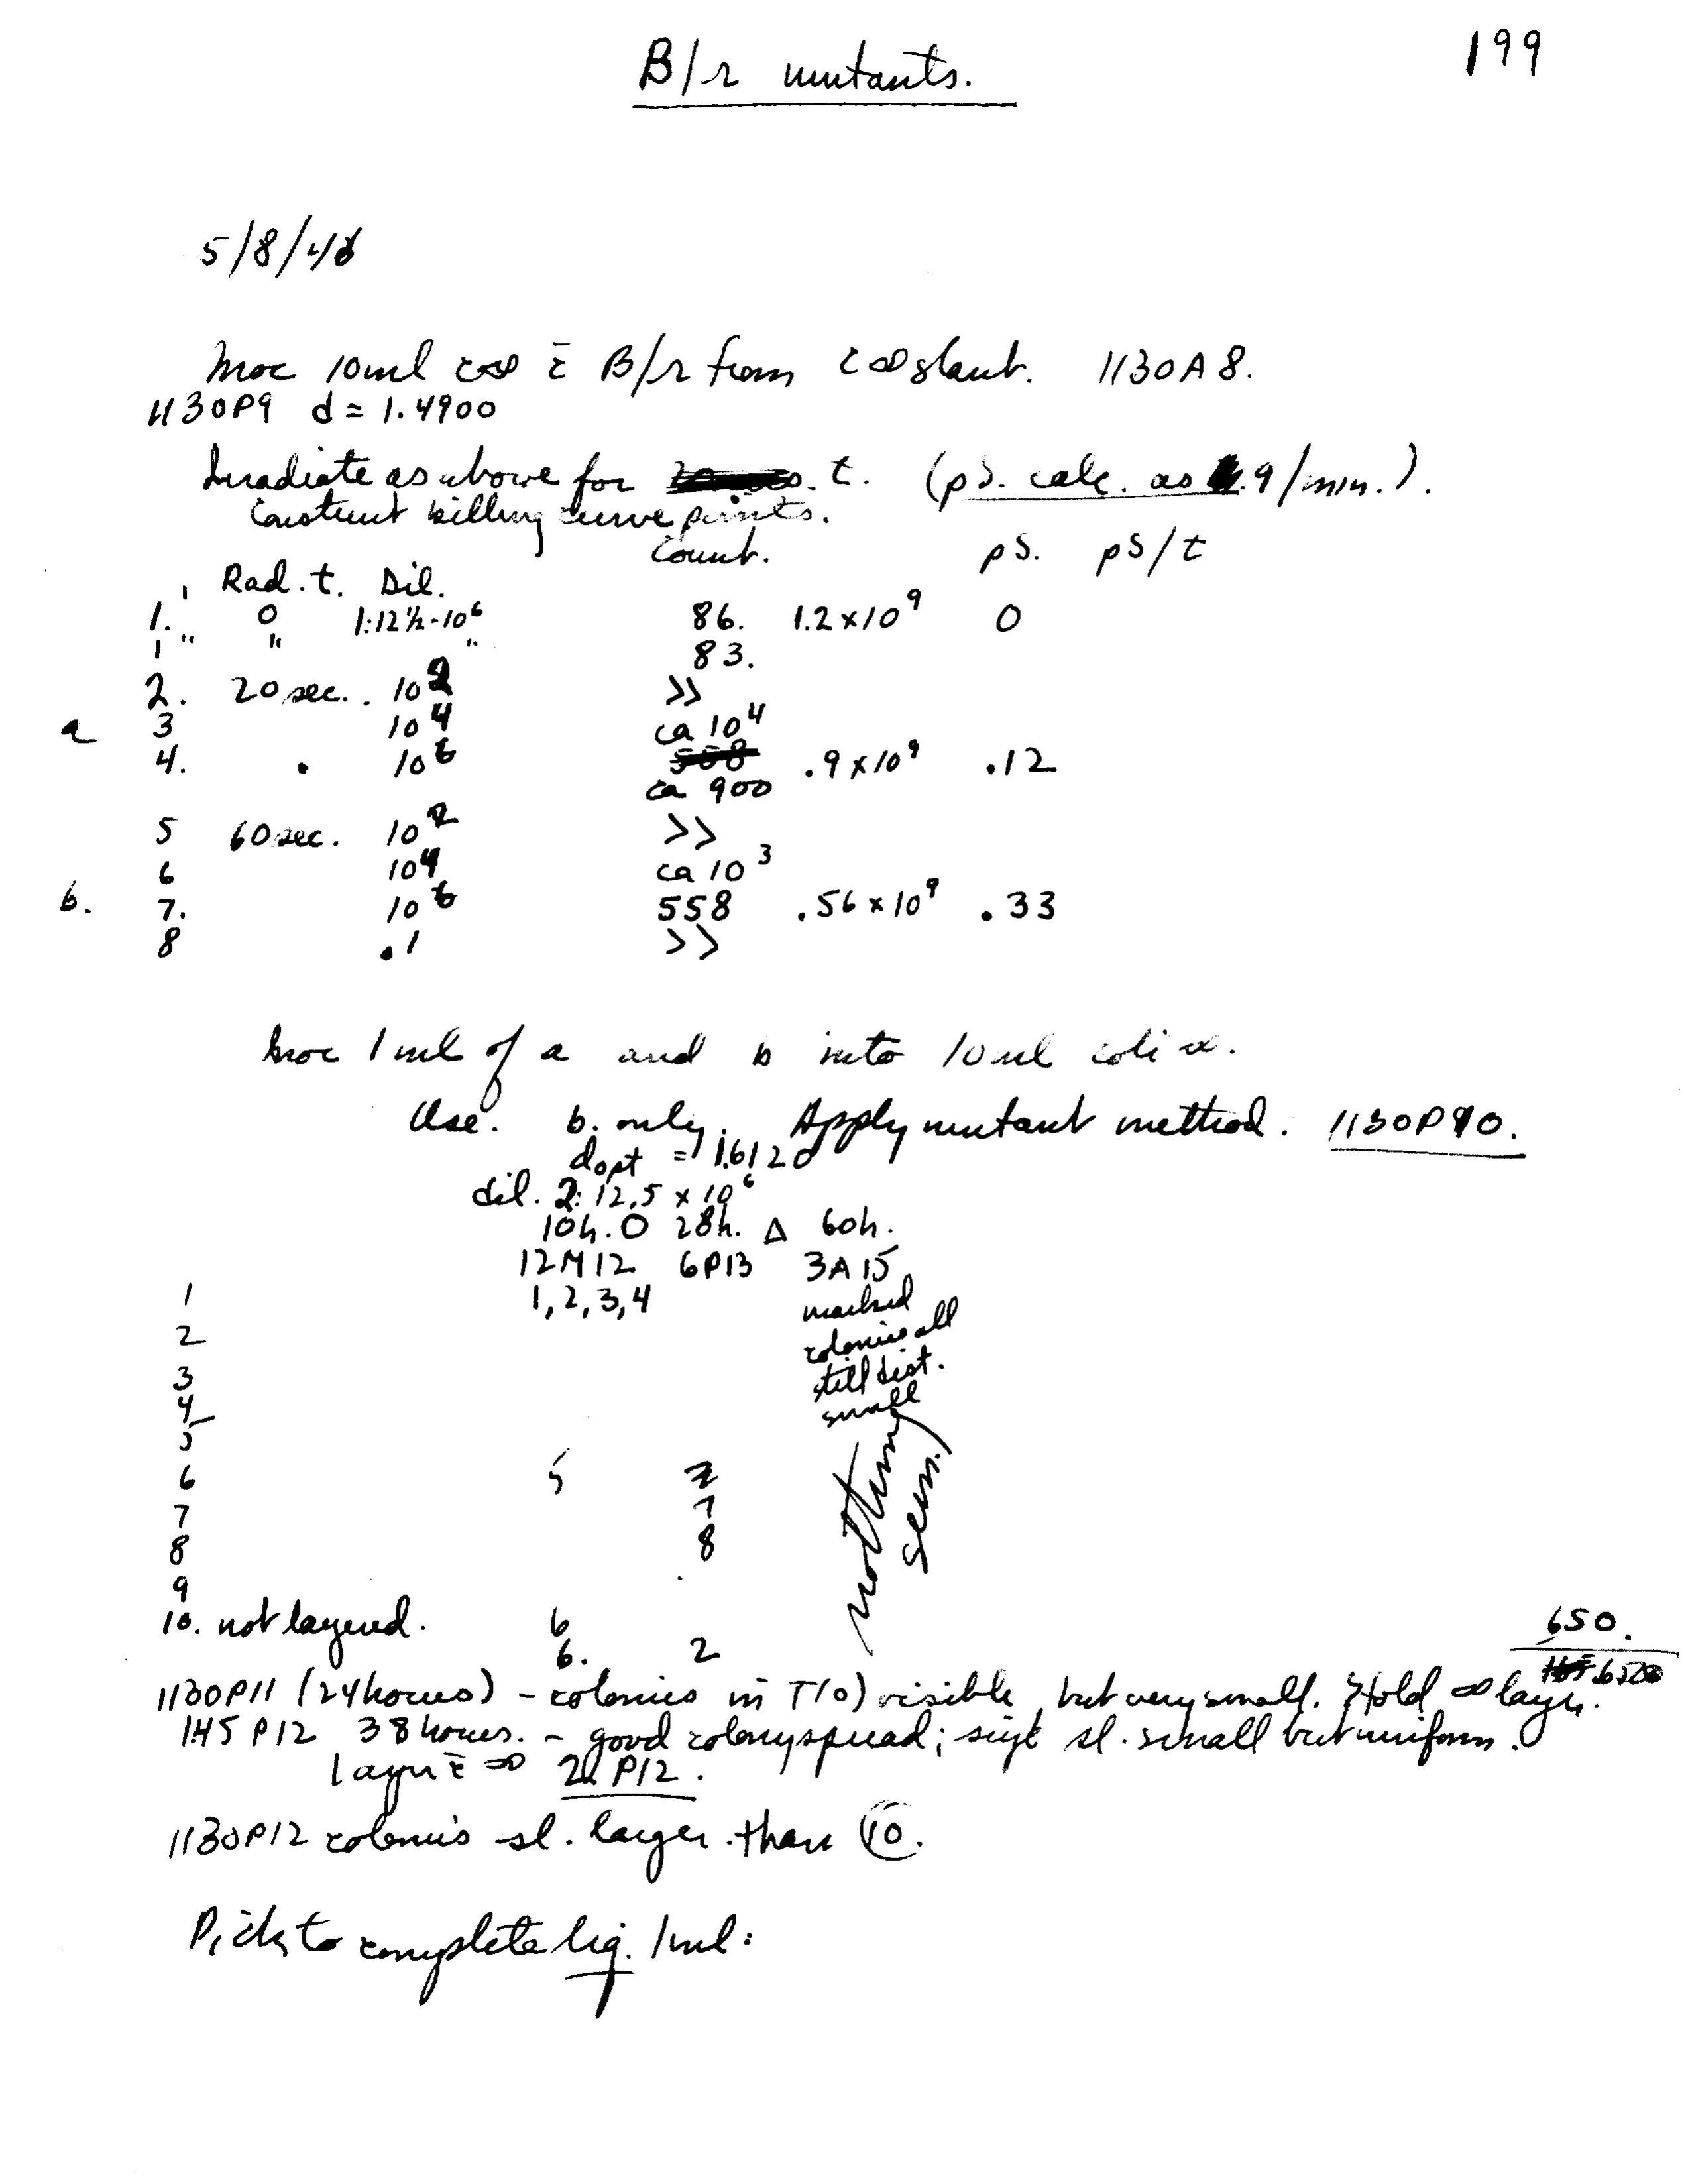 B/r mutants.
199
5/8/46
Inoc 10ml c∞ c̄ B/r from c∞ slant. 1130A8.
1130P9 d = 1.4900
Irradiate as above for t. (pS. calc. as .9/min.).
Construct killing curve points.
Rad. t. Dil. Count. pS. pS/t
1. 0 1:12½·10⁶ 86. 1.2×10⁹ 0
1 " " " 83.
2. 20 sec. 10² >>
a 3 10⁴ ca 10⁴
4. 10⁶ 558 .9×10⁹ .12
ca 900
5 60 sec. 10² >>
6 10⁴ ca 10³
b. 7. 10⁶ 558 .56×10⁹ .33
8 .1 >>
Inoc 1 ml of a and b into 10 ml
Use. b. only. Apply mutant method. 1130P10.
dopt = 1.6120
dil. 2:12.5 × 10⁶
10h. O 28h. Δ 60h.
12M12 6P13 3A15
1 1,2,3,4 marked
2 colonies all
3 still dist.
4 small
5
6 5
7 7
8 8
nothing seen.
9
10. not layered. 6
6. 2
650.
1130P11 (24 hours) - colonies in T(0) visible, but very small. Hold ∞ layer.
145 P12 38 hours. - good colony spread; size sl. small but uniform.
layer c̄ ∞ 2 P12.
1130P12 colonies sl. larger than 10.
Pick to complete liq. 1ml: